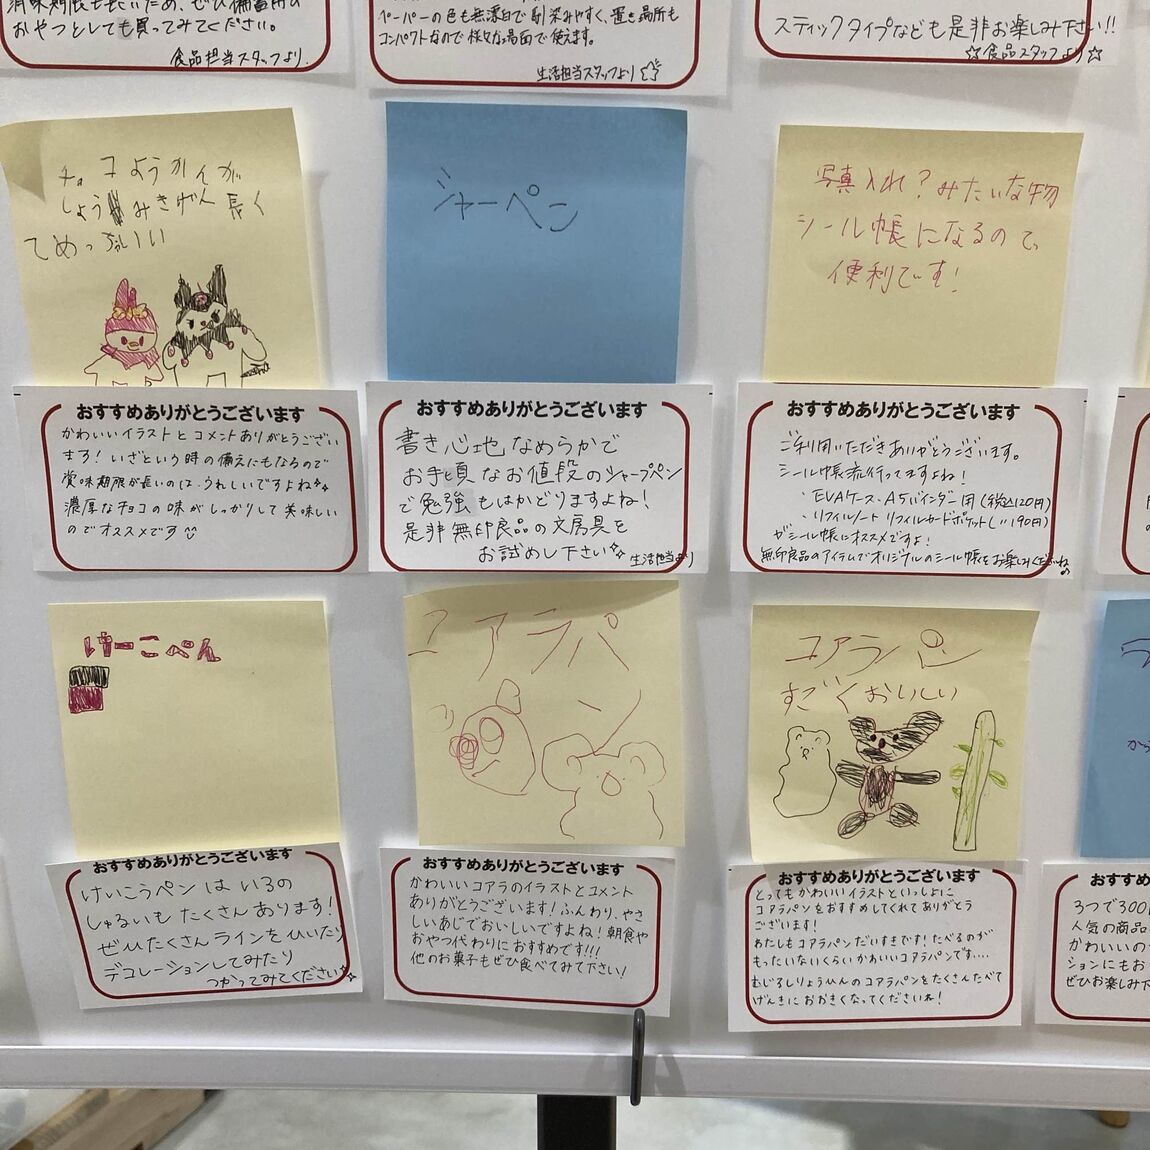 おやつとしても買ってみてください。
食品担当スタッフより
ペーパーの色も無漂白で馴染みやすく、置き場所も
コンパクトなので様々な場面で使えます。
生活担当スタッフより
スティックタイプなども是非お楽しみ下さい!!
☆食品スタッフより☆
チョコようかんが
しょうみきげん長く
てめっちゃいい
シャーペン
写真入れ?みたいな物
シール帳になるので、
便利です!
おすすめありがとうございます
かわいいイラストとコメントありがとうござい
ます!いざという時の備えにもなるので
賞味期限が長いのは、うれしいですよね
濃厚なチョコの味がしっかりして美味しい
のでオススメです
おすすめありがとうございます
書き心地なめらかで
お手頃なお値段のシャープペン
で勉強もはかどりますよね!
是非無印良品の文房具を
お試め し下さい
生活担当より
おすすめありがとうございます
ご利用いただきありがとうございます。
シール帳流行ってますよね!
・EVAケース・A5バインダー用(税込120円)
・リフィルノート リフィルカードポケット(〃190円)
がシール帳にオススメですよ!
無印良品のアイテムでオリジナルのシール帳をお楽しみくださいね♪
けーこぺん
コアラパン
コアラパン
すごくおいしい
おすすめありがとうございます
けいこうペンはいろの
しゅるいもたくさんあります!
ぜひたくさんラインをひいたり
デコレーションしてみたり
つかってみてください
おすすめありがとうございます
かわいいコアラのイラストとコメント
ありがとうございます!ふんわり、やさ
しいあじでおいしいですよね!朝食や
おやつ代わりにおすすめです!!!
他のお菓子もぜひ食べてみて下さい!
おすすめありがとうございます
とってもかわいいイラストといっしょに
コアラパンをおすすめしてくれてありがとう
ございます!
わたしもコアラパンだいすきです!たべるのが
もったいないくらいかわいいコアラパンです....
むじるしりょうひんのコアラパンをたくさんたべて
げんきにおおきくなってくださいね!
から
おすすめ
3つで300
人気の商品
かわいいの
ションにもお
ぜひお楽しみ下